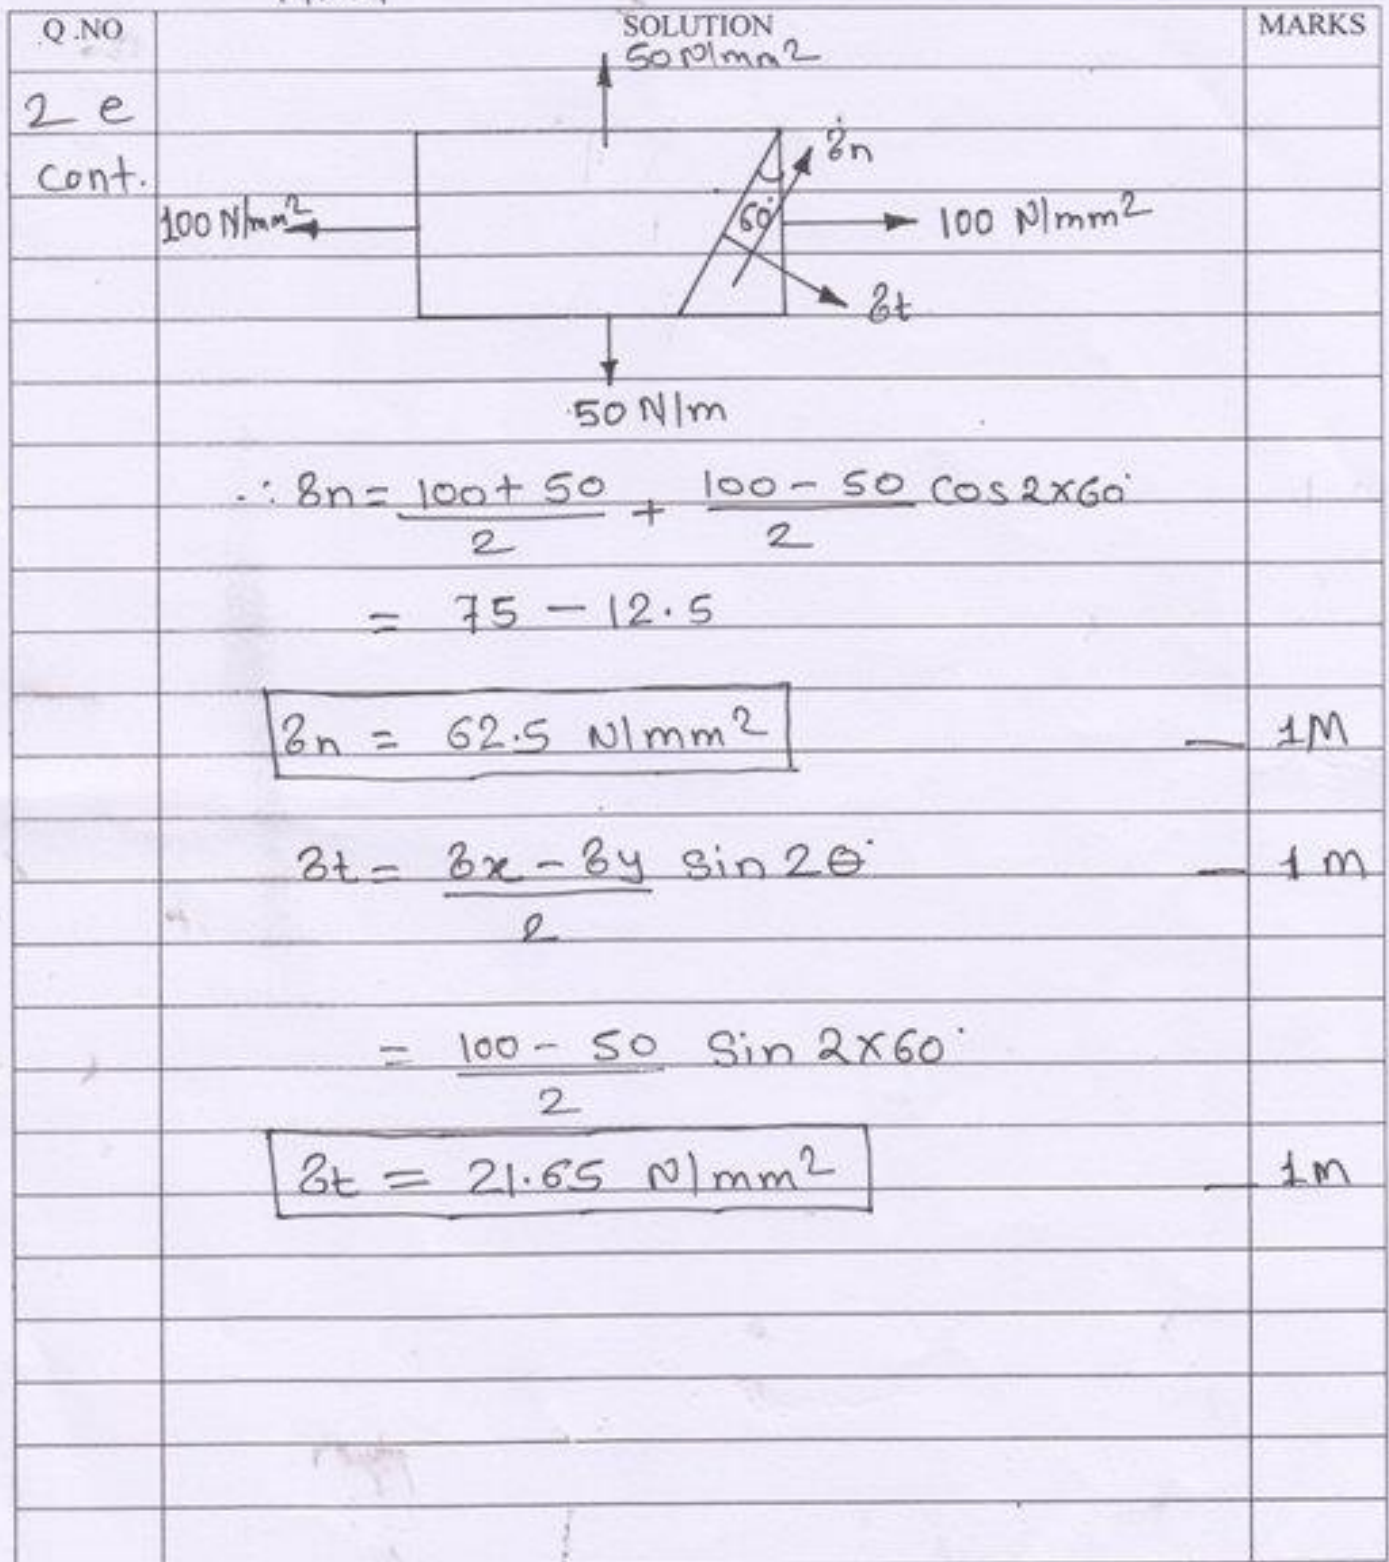 Q.NO SOLUTION MARKS
50 N/mm2
2 e
cont.
σn
100 N/mm2
60°
100 N/mm2
σt
50 N/m
∴ σn = (100 + 50)/2 + (100 - 50)/2 cos 2×60°
= 75 - 12.5
σn = 62.5 N/mm2 — 1M
σt = (σx - σy)/2 sin 2θ — 1m
= (100 - 50)/2 Sin 2×60°
σt = 21.65 N/mm2 — 1m